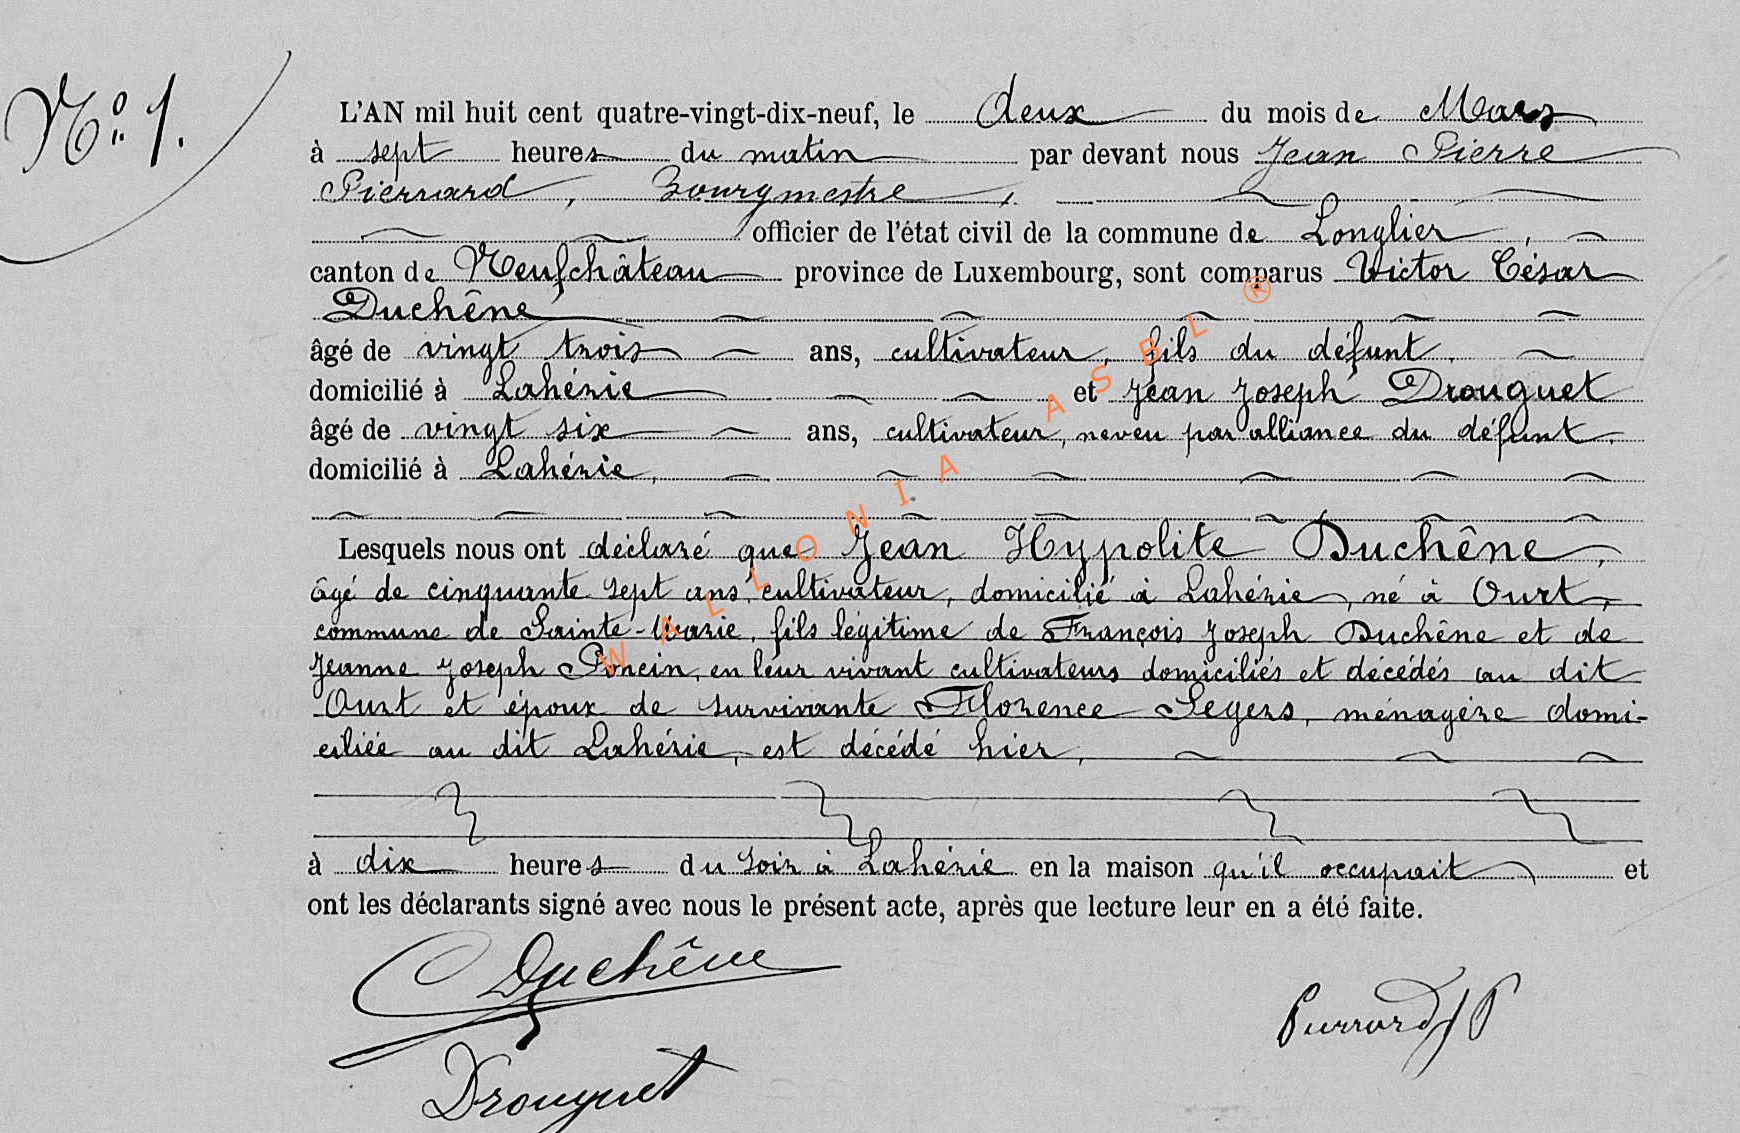 N° 1.
L'AN mil huit cent quatre-vingt-dix-neuf, le deux du mois de Mars
à sept heures du matin par devant nous Jean Pierre
Pierrard, Bourgmestre,
officier de l'état civil de la commune de Longlier,
canton de Neufchâteau province de Luxembourg, sont comparus Victor César
Duchêne
âgé de vingt trois ans, cultivateur, fils du défunt,
domicilié à Lahérie et Jean Joseph Drouguet
âgé de vingt six ans, cultivateur, neveu par alliance du défunt,
domicilié à Lahérie,
Lesquels nous ont déclaré que Jean Hypolite Duchêne,
âgé de cinquante sept ans, cultivateur, domicilié à Lahérie, né à Ourt,
commune de Sainte-Marie, fils légitime de François Joseph Duchêne et de
Jeanne Joseph Poncin, en leur vivant cultivateurs domiciliés et décédés au dit
Ourt et époux de survivante Florence Segers, ménagère domi-
ciliée au dit Lahérie, est décédé hier,
à dix heures du soir à Lahérie en la maison qu'il occupait et
ont les déclarants signé avec nous le présent acte, après que lecture leur en a été faite.
C Duchêne
Pierrard J P
Drouguet
WALLONIA ASBL ®